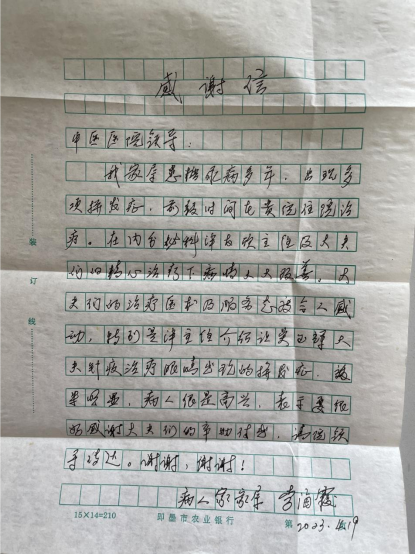 感谢信
中医医院领导:
我家属患糖尿病多年,出现多
项并发症,前段时间在贵院住院治
疗。在内分泌科泽友欢主任及大夫
们的精心治疗下病情大大改善,大
夫们的治疗医术及服务态度令人感
动,特别是泽主任介绍让吴玉辉大
夫针疚治疗眼睛出现的并发症,效
果明显,病人很是高兴,表示要
感谢大夫们的帮助付出,请院领
导转达。谢谢,谢谢!
病人家家属 李海霞
15×14=210 即墨市农业银行 第 2023.4.19
装
订
线